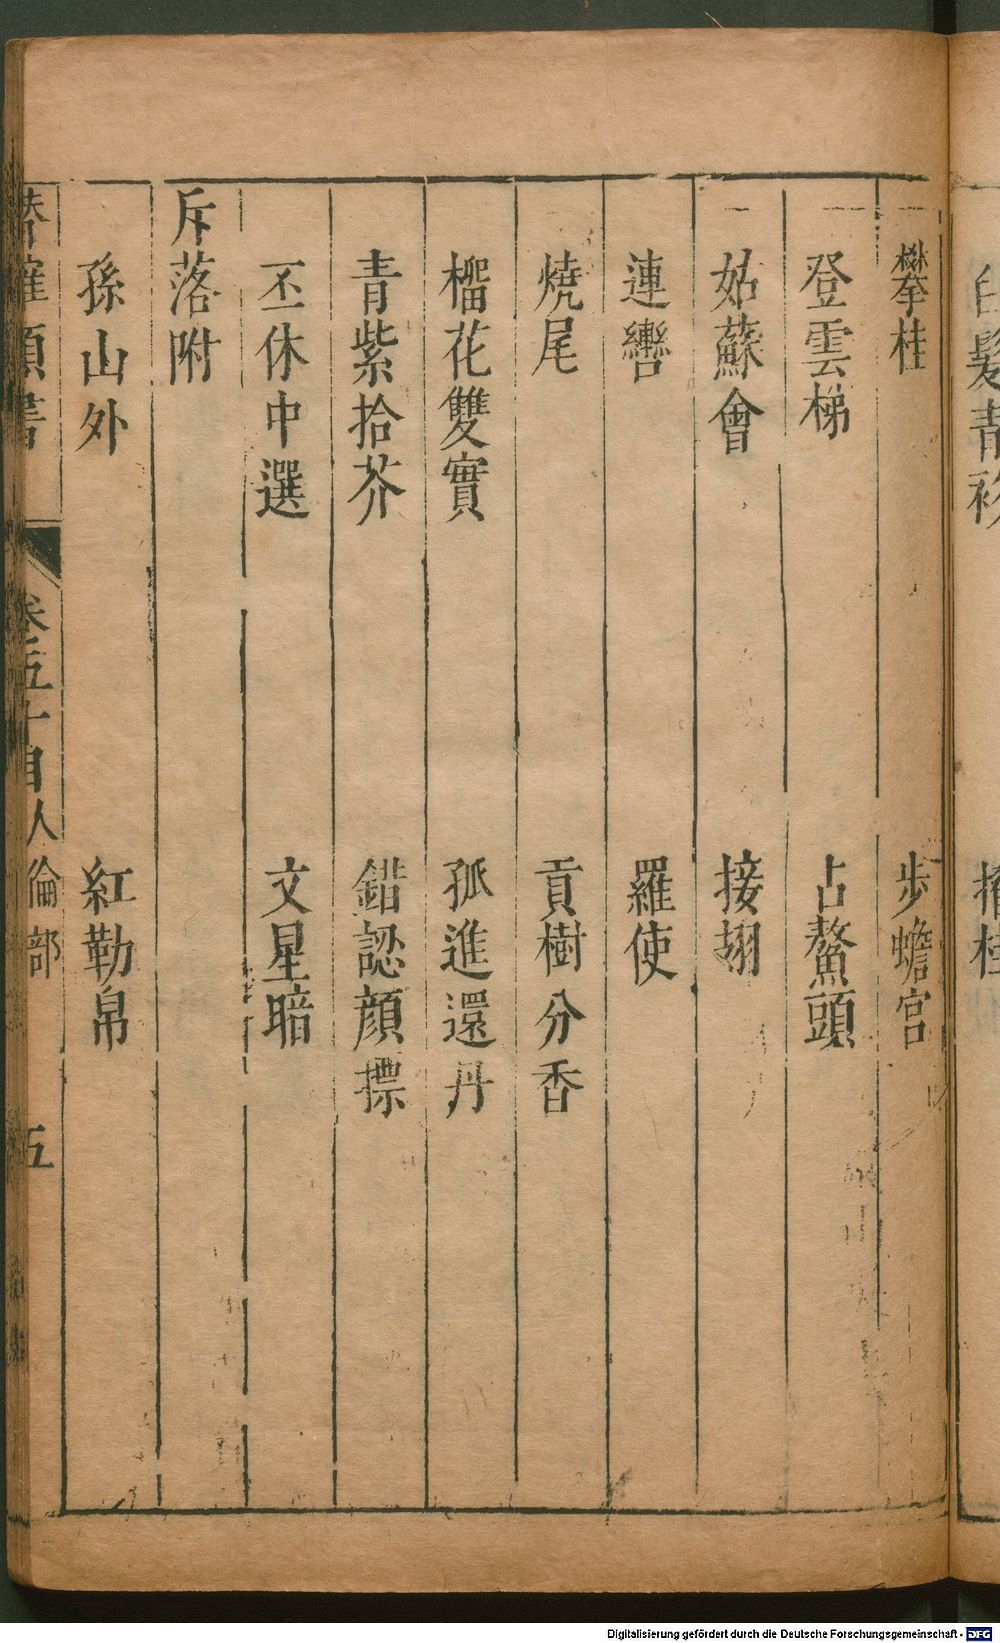 攀桂　步蟾宮
登雲梯　占鰲頭
姑蘇會　接翅
連轡　羅使
燒尾　貢樹分香
榴花雙實　孤進還丹
青紫拾芥　錯認顏標
丕休中選　文星暗
斥落附
孫山外　紅勒帛
卷五十目人倫部　五
Digitalisierung gefördert durch die Deutsche Forschungsgemeinschaft - DFG